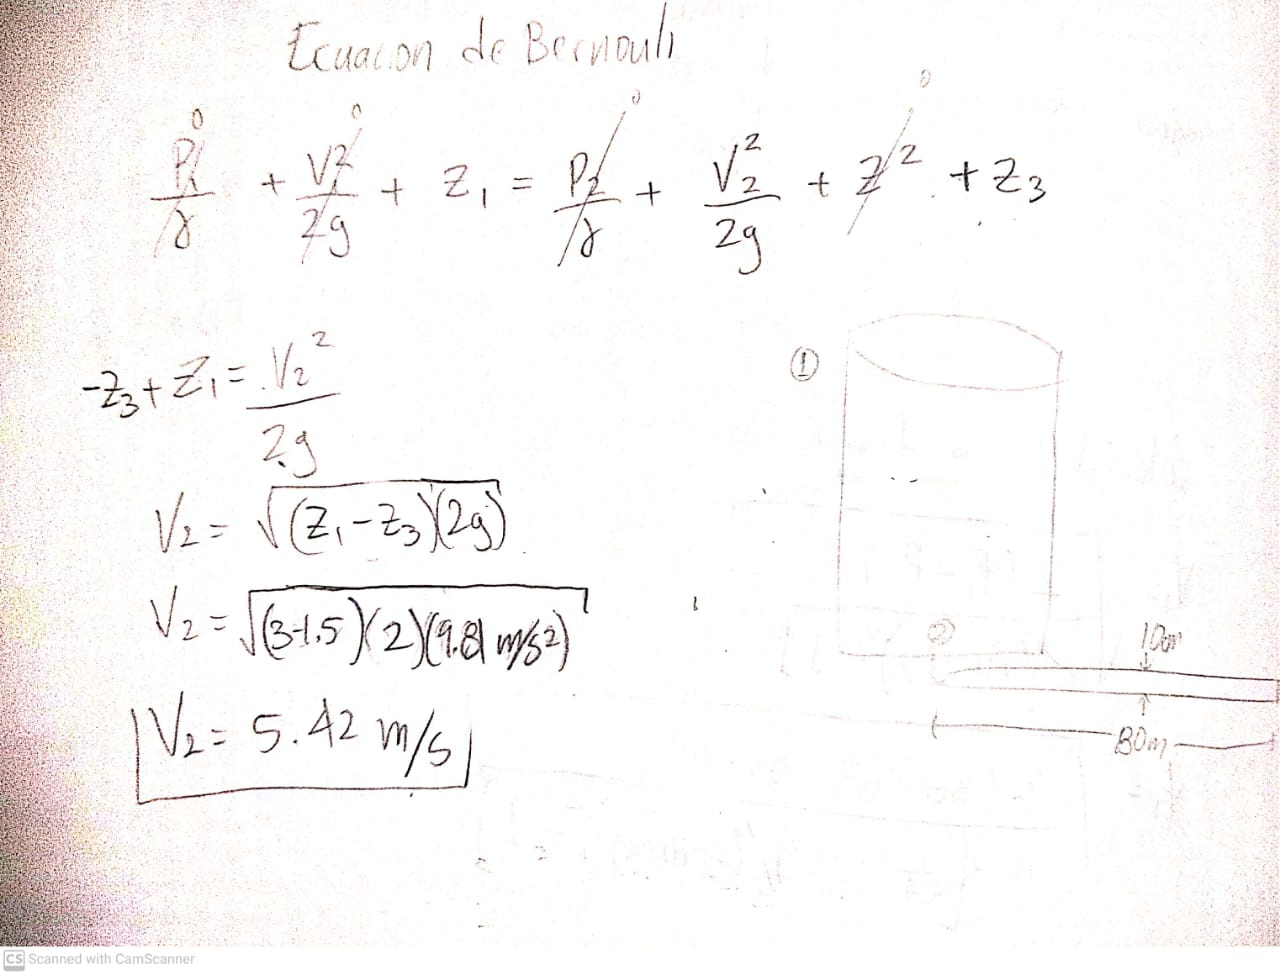 Ecuacon de Bernouli
0 0 0 0
P1/γ + V1²/2g + Z1 = P2/γ + V2²/2g + Z2 + Z3
-Z3 + Z1 = V2²/2g
①
V2 = √(Z1-Z3)(2g)
V2 = √(3-1.5)(2)(9.81 m/s2)
②
10cm
V2 = 5.42 m/s
80m
CS Scanned with CamScanner